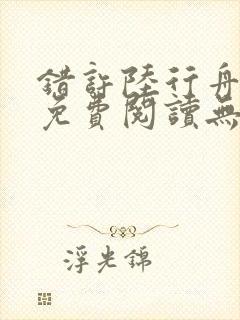 錯許陸行舟
免費閱讀無
浮光錦